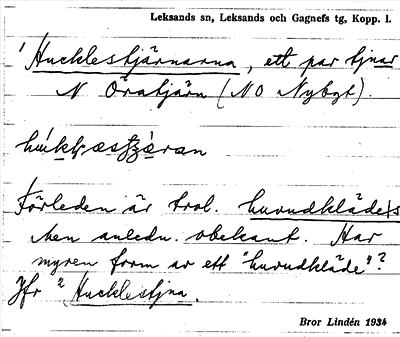 Leksands sn, Leksands och Gagnefs tg, Kopp. l.
1 Hucklestjärnarna, ett par tjnar
N Öratjärn (NO Nybgt).
Förleden är trol. huvudkläde(s
Men anledn. obekant. Har
myren form av ett "huvudkläde"?
Jfr 2 Hucklestjna.
Bror Lindén 1934